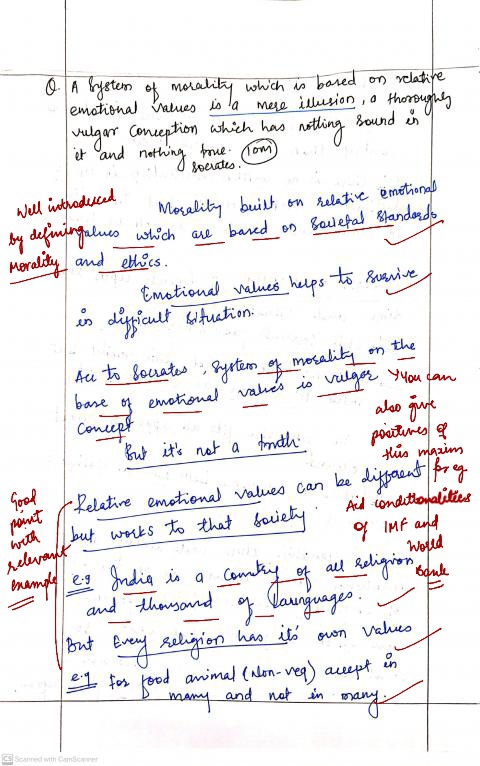 Q. A System of morality which is based on relative
emotional values is a mere illusion, a thoroughly
vulgar conception which has nothing sound in
it and nothing true. 10m
Socrates.
Well introduced
by defining
Morality
Morality built on relative emotional
values which are based on Societal Standards
and ethics.
Emotional values helps to survive
in difficult situation.
Acc to Socrates, System of morality on the
base of emotional values is vulgar
Concept
But it's not a truth.
You can
also give
positives of
this maxim
for eg
Aid conditionalities
of IMF and
World
Bank
Good
point
with
relevant
example
Relative emotional values can be different
but works to that Society.
e.g India is a Country of all religion
and thousand of launguages.
But Every religion has it's own values
e.g For food animal (Non-veg) accept in
many and not in many.
CS Scanned with CamScanner